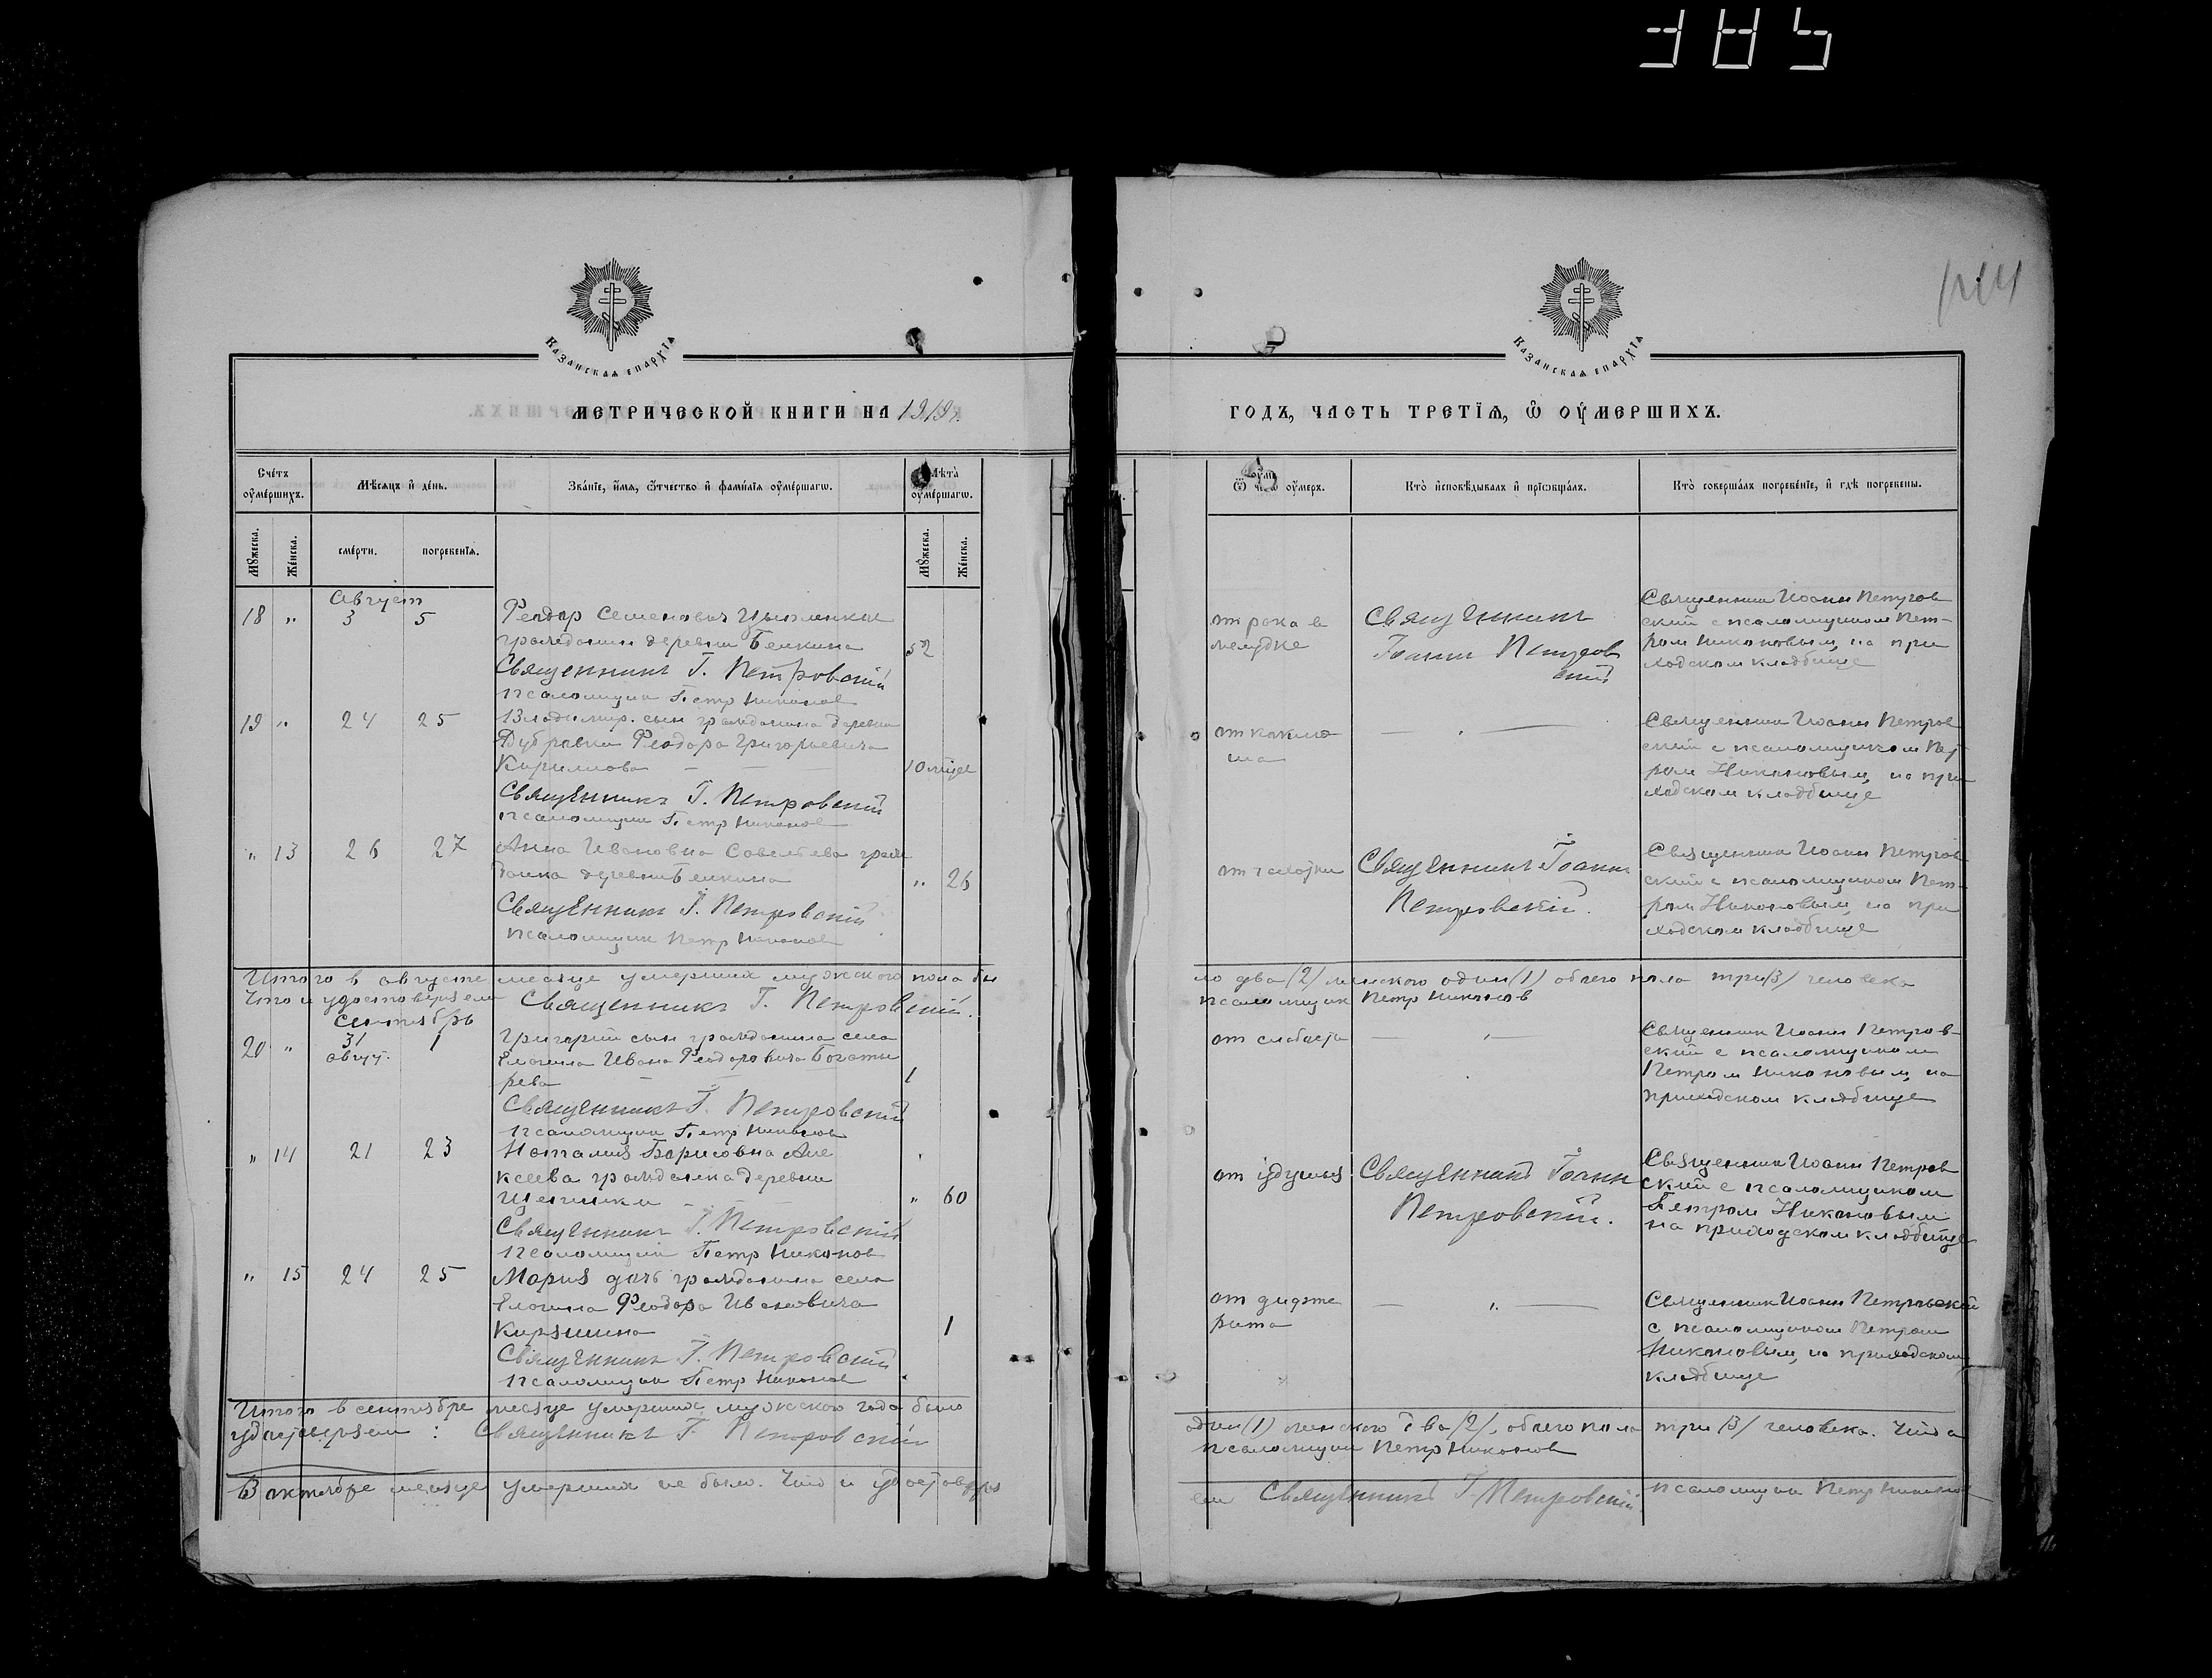 385
144
Казанская епархїѧ
Казанская епархїѧ
МЕТРИЧЕСКОЙ КНИГИ НА 1919 г.
ГОДЪ, ЧАСТЬ ТРЕТЇѦ, Ѡ ОУМЕРШИХЪ.
Счетъ оумершихъ.
Мѣсяцъ и день.
Званїе, имя, отчество и фамилїя оумершагѡ.
Лѣта оумершагѡ.
Ѿ чегѡ оумеръ.
Кто исповѣдывалъ и прїѡбщалъ.
Кто совершалъ погребенїе, и гдѣ погребены.
Мꙋжеска.
Женска.
смерти.
погребенїя.
Мꙋжеска.
Женска.
Август
18 " 3 5 Феодор Семенович
гражданин деревни Белкина 52
Священникъ І. Петровскій
псаломщик Петр Никонов
от рака в
желудке
Священникъ
Іоанн Петров
скій
Священник Иоанн Петров
ский с псаломщиком Пет-
ром Никоновым, на при
ходском кладбище
19 " 24 25 Владимир, сын гражданина деревни
Дубравки Феодора Григорьевича
Кириллова — — 10 месяц
Священникъ І. Петровскій
псаломщик Петр Никонов
от коклю
ша
— " —
Священник Иоанн Петров
ский с псаломщиком Пет
ром Никоновым, на при
ходском кладбище
" 13 26 27 Анна Ивановна Савельева граж
данка деревни Белкина " 26
Священникъ І. Петровскій
псаломщик Петр Никонов
от чахотки
Священникъ Іоаннъ
Петровскій.
Священник Иоанн Петров
ский с псаломщиком Пет-
ром Никоновым, на при
ходском кладбище
Итого в августе месяце умерших мужского пола бы
ло два (2) женского один (1) обоего пола три (3) человека
Что и удостоверяем Священникъ І. Петровскій.
псаломщик Петр Никонов
Сентябрь
20 " 31 1 Григорий сын гражданина села
авгус. Ивана Феодоровича Богаты
рева — — 1
Священникъ І. Петровскій
псаломщик Петр Никонов
от слабости
— " —
Священник Иоанн Петров
ский с псаломщиком
Петром Никоновым, на
приходском кладбище
" 14 21 23 Наталия Борисовна Але
ксеева гражданка деревни
" 60
Священникъ І. Петровскій
псаломщик Петр Никонов
от удушья
Священникъ Іоанн
Петровскій.
Священник Иоанн Петров
ский с псаломщиком
Петром Никоновым
на приходском кладбище
" 15 24 25 Мария дочь гражданина села
Феодора Ивановича
Киряшина 1
Священникъ І. Петровскій
псаломщик Петр Никонов
от дифте
рита
— " —
Священник Иоанн Петровский
с псаломщиком Петром
Никоновым, на приходском
кладбище
Итого в сентябре месяце умерших мужского было
один (1) женского два (2), обоего пола три (3) человека. Что и
удостоверяем: Священникъ І. Петровскій
псаломщик Петр Никонов
В октябре месяце умерших не было. Что и удостоверя
ем Священникъ І. Петровскій псаломщик Петр Никонов